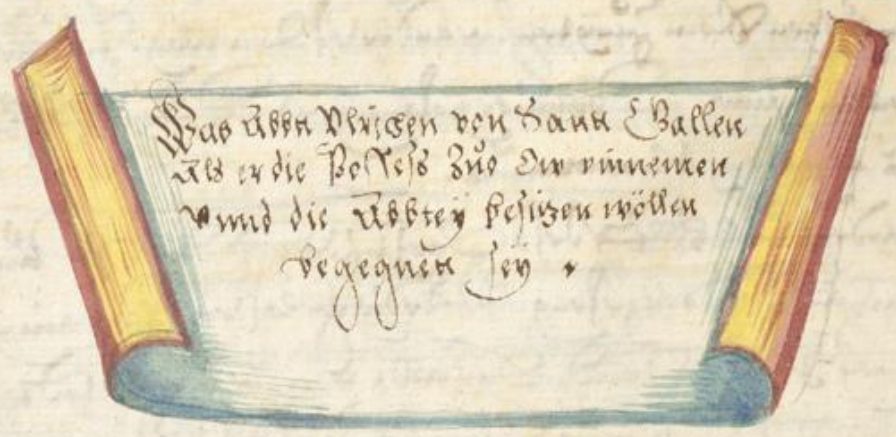 Was Abbt Vlrichen von Sant Gallen
Als er die Possess zůo Ow einnemen
vnnd die Abbtey besitzen wöllen
begegnett sey .